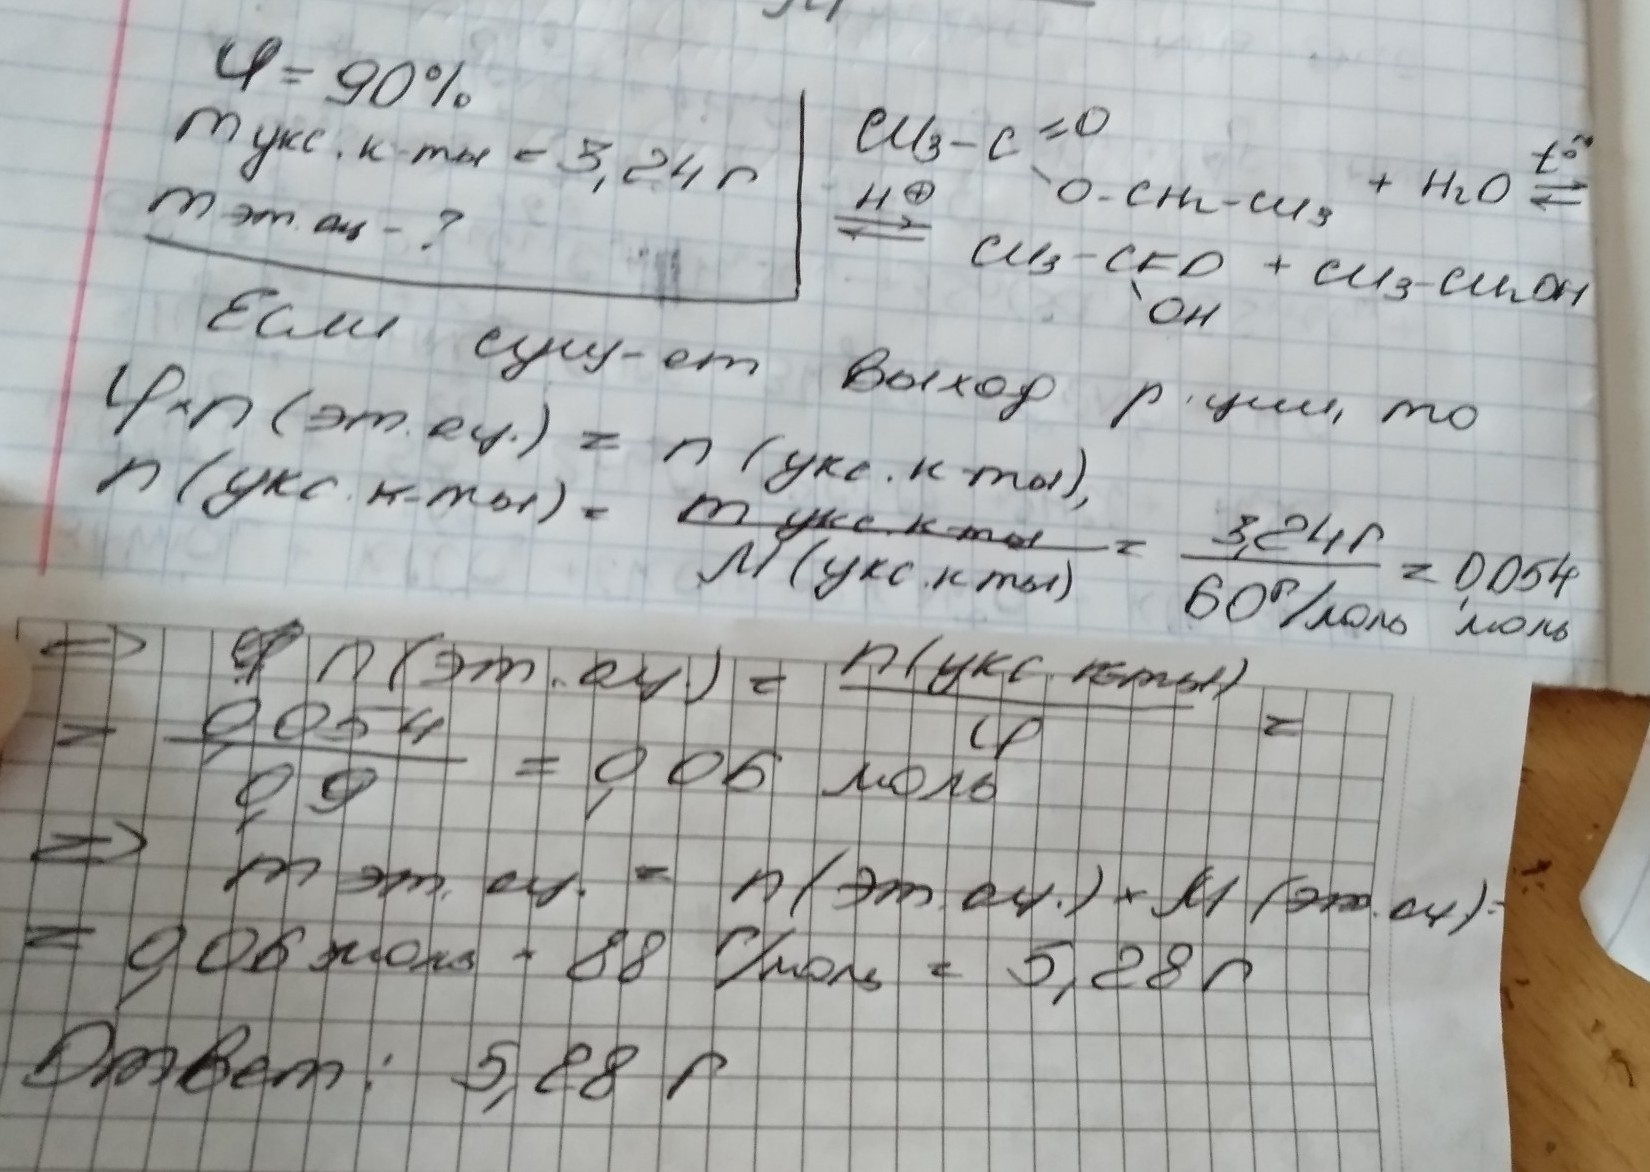 φ = 90%
m укс. к-ты = 3,24 г
m эт. ац - ?
CH3-C=O
O-CH2-CH3 + H2O t° ⇌
H⊕ ⇌
CH3-C=O + CH3-CH2OH
OH
Если сущ-ет выход р-ции, то
φ·n(эт.ац.) = n(укс.к-ты),
n(укс.к-ты) = m укс.к-ты / M(укс.к-ты) = 3,24 г / 60 г/моль = 0,054 моль
=> n(эт.ац.) = n(укс.к-ты) / φ =
= 0,054 / 0,9 = 0,06 моль
=> m эт. ац. = n(эт.ац.) · M(эт.ац) =
= 0,06 моль · 88 г/моль = 5,28 г
Ответ: 5,28 г